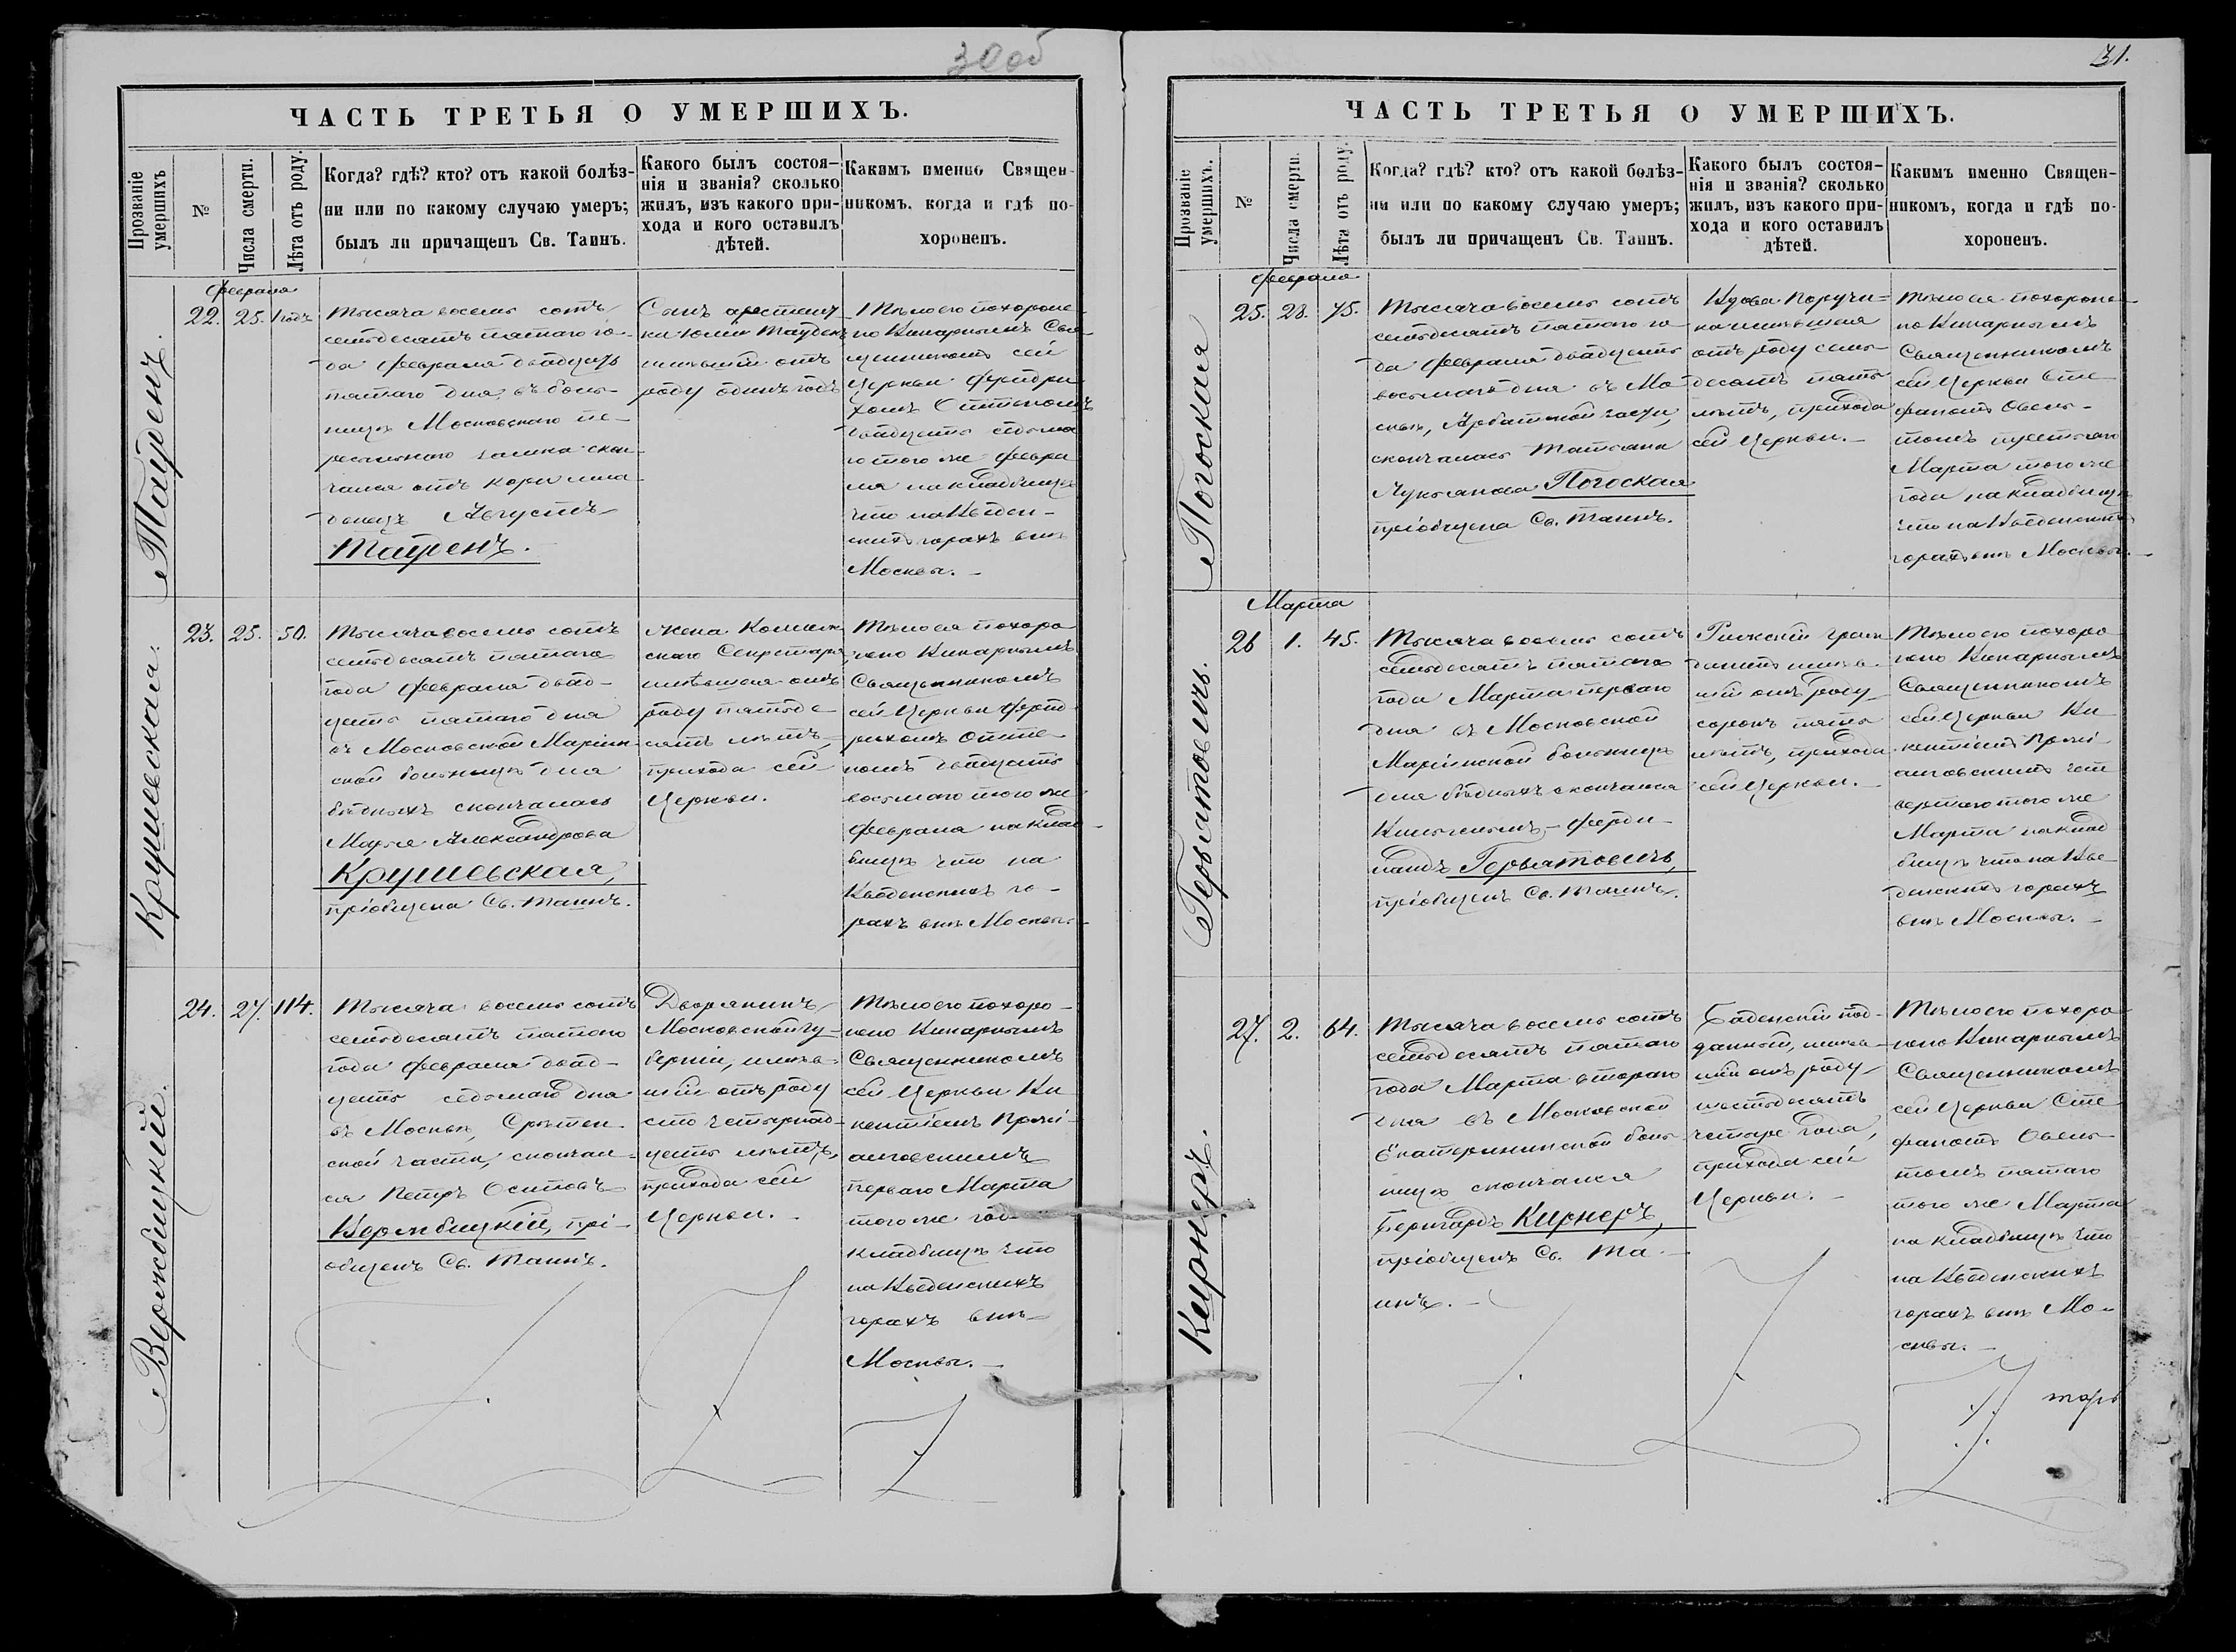 30об
ЧАСТЬ ТРЕТЬЯ О УМЕРШИХЪ.
Прозваніе умершихъ
№
Числа смерти.
Лѣта отъ роду.
Когда? гдѣ? кто? отъ какой болѣз-
ни или по какому случаю умеръ;
былъ ли причащенъ Св. Таинъ.
Какого былъ состоя-
нія и званія? сколько
жилъ, изъ какого при-
хода и кого оставилъ
дѣтей.
Какимъ именно Священ-
никомъ, когда и гдѣ по-
хороненъ.
Тауренъ.
Февраля
22.
25.
1 годъ
Тысяча восемь сотъ
семьдесятъ пятаго го-
да Февраля двадцать
пятаго дня, въ боль-
ницѣ Московскаго пе-
ресыльнаго замка скон-
чался отъ кори мла-
денецъ Августъ
Тауренъ.
Сынъ арестант-
ки Юліи Тауренъ
имѣвшій отъ
роду одинъ годъ
Тѣло его похороне-
но Викарнымъ Свя-
щенникомъ сей
Церкви Фридри
хомъ Оттеномъ
двадцать седьма
го того же Февра
ля на кладбищѣ
что на Введен-
скихъ горахъ внѣ
Москвы.
Крушевская.
23.
25.
50.
Тысяча восемь сотъ
семьдесятъ пятаго
года Февраля двад-
цать пятаго дня
въ Московской Маріин-
ской больницѣ для
бѣдныхъ скончалась
Марья Александрова
Крушевская,
пріобщена Св. Таинъ.
Жена Коллеж
скаго Секретаря,
имѣвшая отъ
роду пятьде-
сятъ лѣтъ,
прихода сей
Церкви.
Тѣло ея похоро
нено Викарнымъ
Священникомъ
сей Церкви Фрид
рихомъ Отте-
номъ двадцать
восьмаго того же
Февраля на клад-
бищѣ что на
Введенскихъ го-
рахъ внѣ Москвы.
Вержбицкій.
24.
27.
114.
Тысяча восемь сотъ
семьдесятъ пятаго
года Февраля двад-
цать седьмаго дня
въ Москвѣ, Срѣтен-
ской части, скончал-
ся Петръ Осиповъ
Вержбицкій, прі-
общенъ Св. Таинъ.
Дворянинъ
Московской гу-
берніи, имѣв-
шій отъ роду
сто четырнад-
цать лѣтъ,
прихода сей
Церкви.
Тѣло его похоро-
нено Викарнымъ
Священникомъ
сей Церкви Ви
кентіемъ
перваго Марта
того же
кладбищѣ что
на Введенскихъ
горахъ внѣ
Москвы.
31.
ЧАСТЬ ТРЕТЬЯ О УМЕРШИХЪ.
Прозваніе умершихъ.
№
Числа смерти.
Лѣта отъ роду.
Когда? гдѣ? кто? отъ какой болѣз-
ни или по какому случаю умеръ;
былъ ли причащенъ Св. Таинъ.
Какого былъ состоя-
нія и званія? сколько
жилъ, изъ какого при-
хода и кого оставилъ
дѣтей.
Какимъ именно Священ-
никомъ, когда и гдѣ по-
хороненъ.
Погоская
Февраля
25.
28.
75.
Тысяча восемь сотъ
семьдесятъ пятаго го-
да Февраля двадцать
восьмаго дня въ Мо-
сквѣ, Арбатской части,
скончалась Татьяна
Лукьянова Погоская
пріобщена Св. Таинъ.
Вдова Поручи-
ка имѣвшая
отъ роду семь-
десятъ пять
лѣтъ, прихода
сей Церкви.
Тѣло ея похороне-
но Викарнымъ
Священникомъ
сей Церкви Сте
фаномъ Овель-
томъ третьяго
Марта того же
года на кладбищѣ
что на Введенскихъ
горахъ внѣ Москвы.
Гервятовичъ.
Марта
26
1.
45.
Тысяча восемь сотъ
семьдесятъ пятаго
года Марта перваго
дня въ Московской
Маріинской больницѣ
для бѣдныхъ скончался
Вильгельмъ-Ферди-
нандъ Гервятовичъ,
пріобщенъ Св. Таинъ.
Рижскій граж
данинъ имѣв-
шій отъ роду
сорокъ пять
лѣтъ, прихода
сей Церкви.
Тѣло его похоро
нено Викарнымъ
Священникомъ
сей Церкви Ви
кентіемъ
чет
вертаго того же
Марта на клад
бищѣ что на Вве
денскихъ горахъ
внѣ Москвы.
Кирнеръ.
27.
2.
64.
Тысяча восемь сотъ
семьдесятъ пятаго
года Марта втораго
дня въ Московской
Екатерининской боль-
ницѣ скончался
Бернгардъ Кирнеръ,
пріобщенъ Св. Та-
инъ.
Баденскій под-
данный, имѣв-
шій отъ роду
шестьдесятъ
четыре года,
прихода сей
Церкви.
Тѣло его похоро
нено Викарнымъ
Священникомъ
сей Церкви Сте
фаномъ Овель-
томъ пятаго
того же Марта
на кладбищѣ что
на Введенскихъ
горахъ внѣ Мо-
сквы.